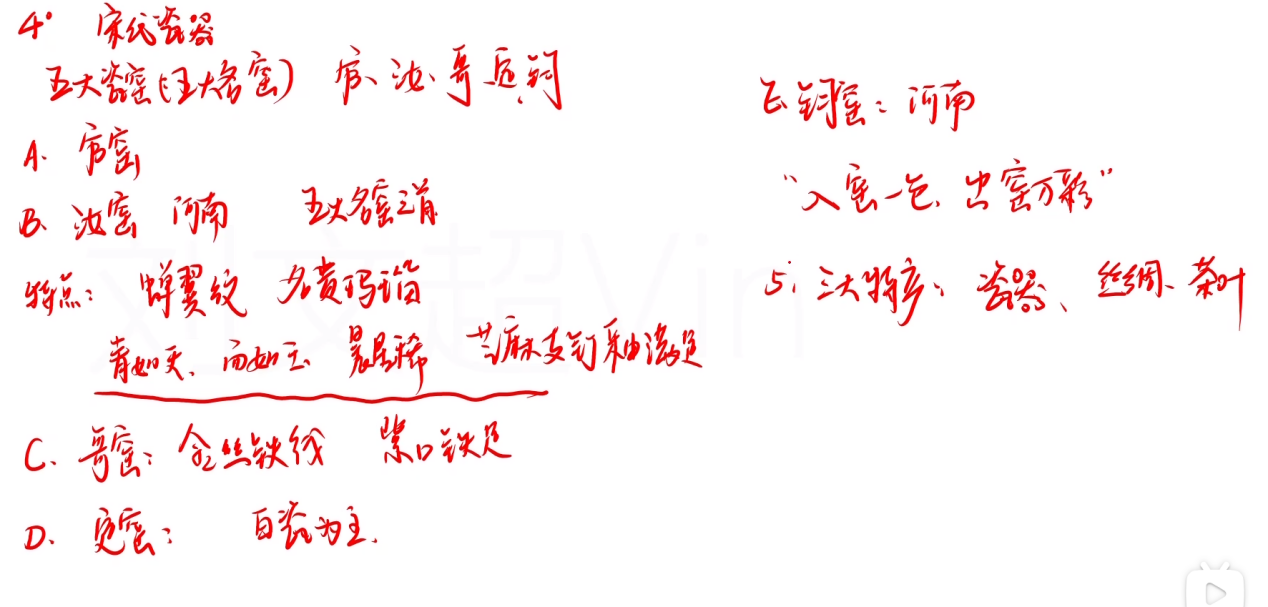 4° 宋代瓷器
五大瓷窑(五大名窑) 官、汝、哥、定、钧
A. 官窑
B. 汝窑 河南 五大名窑之首
特点: 蝉翼纹 名贵玛瑙
青如天、面如玉 晨星稀 芝麻支钉釉满足
C. 哥窑: 金丝铁线 紫口铁足
D. 定窑: 白瓷为主.
E 钧窑: 河南
"入窑一色, 出窑万彩"
5. 三大特产: 瓷器、丝绸、茶叶